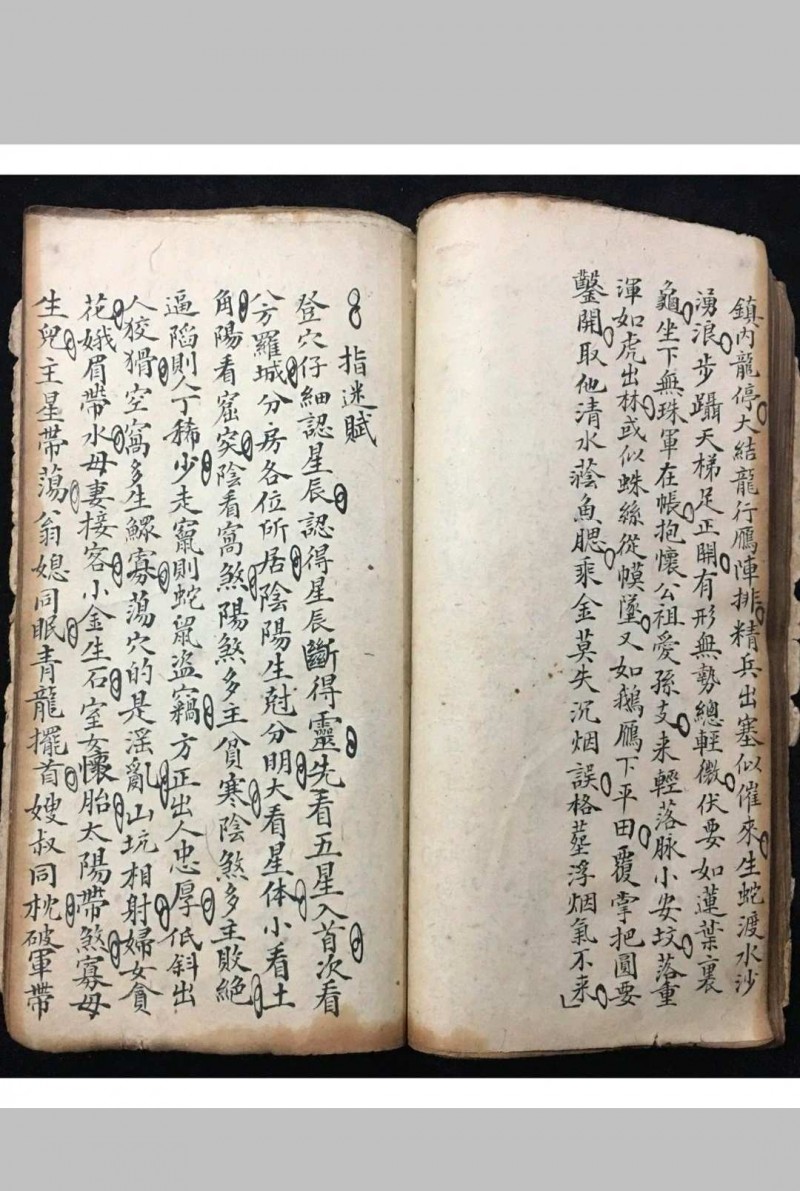 鎮內龍停大結龍行鴈陣排精兵出塞似催來生蛇渡水沙
湧浪步躡天梯足正開有形無勢總輕微伏要如蓮葉裏
龜坐下無珠軍在帳抱懷公祖愛孫支来輕落脉小安坟落重
渾如虎出林或似蛛絲從幙墜又如鵝鴈下平田覆掌把圓要
鑿開取他清水蔭魚腮乘金莫失沉烟誤格塟浮烟氣不来
指迷賦
登穴仔細認星辰認得星辰斷得靈先看五星入首次看
兮羅城分房各位所居陰陽生尅分明大看星体小看土
角陽看窟突陰看窩煞陽煞多主貧寒陰煞多主敗絶
逼陷則人丁稀少走竄則蛇鼠盜竊方正出人忠厚低斜出
人狡猾空窩多生鰥寡蕩穴的是淫亂山坑相射婦女貪
花娥眉帶水母妻接客小金生石室女懷胎太陽帶煞寡母
生兒主星帶蕩翁媳同眠青龍擺首嫂叔同枕破軍帶